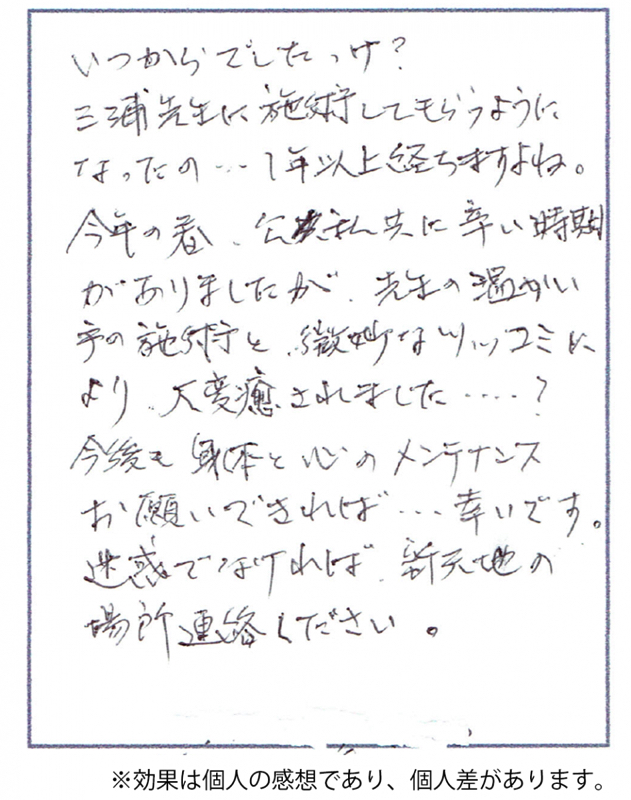 いつからでしたっけ?
三浦先生に施術してもらうように
なったの…1年以上経ちますよね。
今年の春、公私共に辛い時期
がありましたが、先生の温かい
手の施術と、微妙なツッコミに
より、大変癒されました……?
今後も身体と心のメンテナンス
お願いできれば…幸いです。
迷惑でなければ、新天地の
場所連絡ください。
※効果は個人の感想であり、個人差があります。